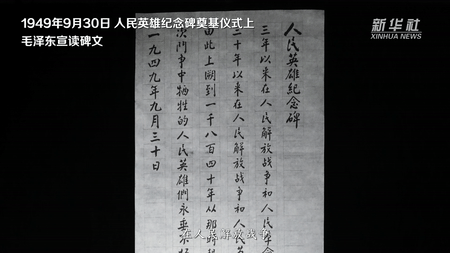 1949年9月30日 人民英雄纪念碑奠基仪式上
毛泽东宣读碑文
新华社
XINHUA NEWS
人民英雄紀念碑
三年以来在人民解放战争和人民革
三十年以来在人民解放战争和人民
由此上溯到一千八百四十年从那時
次鬥争中牺牲的人民英雄們永垂不朽
一九四九年九月三十日
在人民解放战争